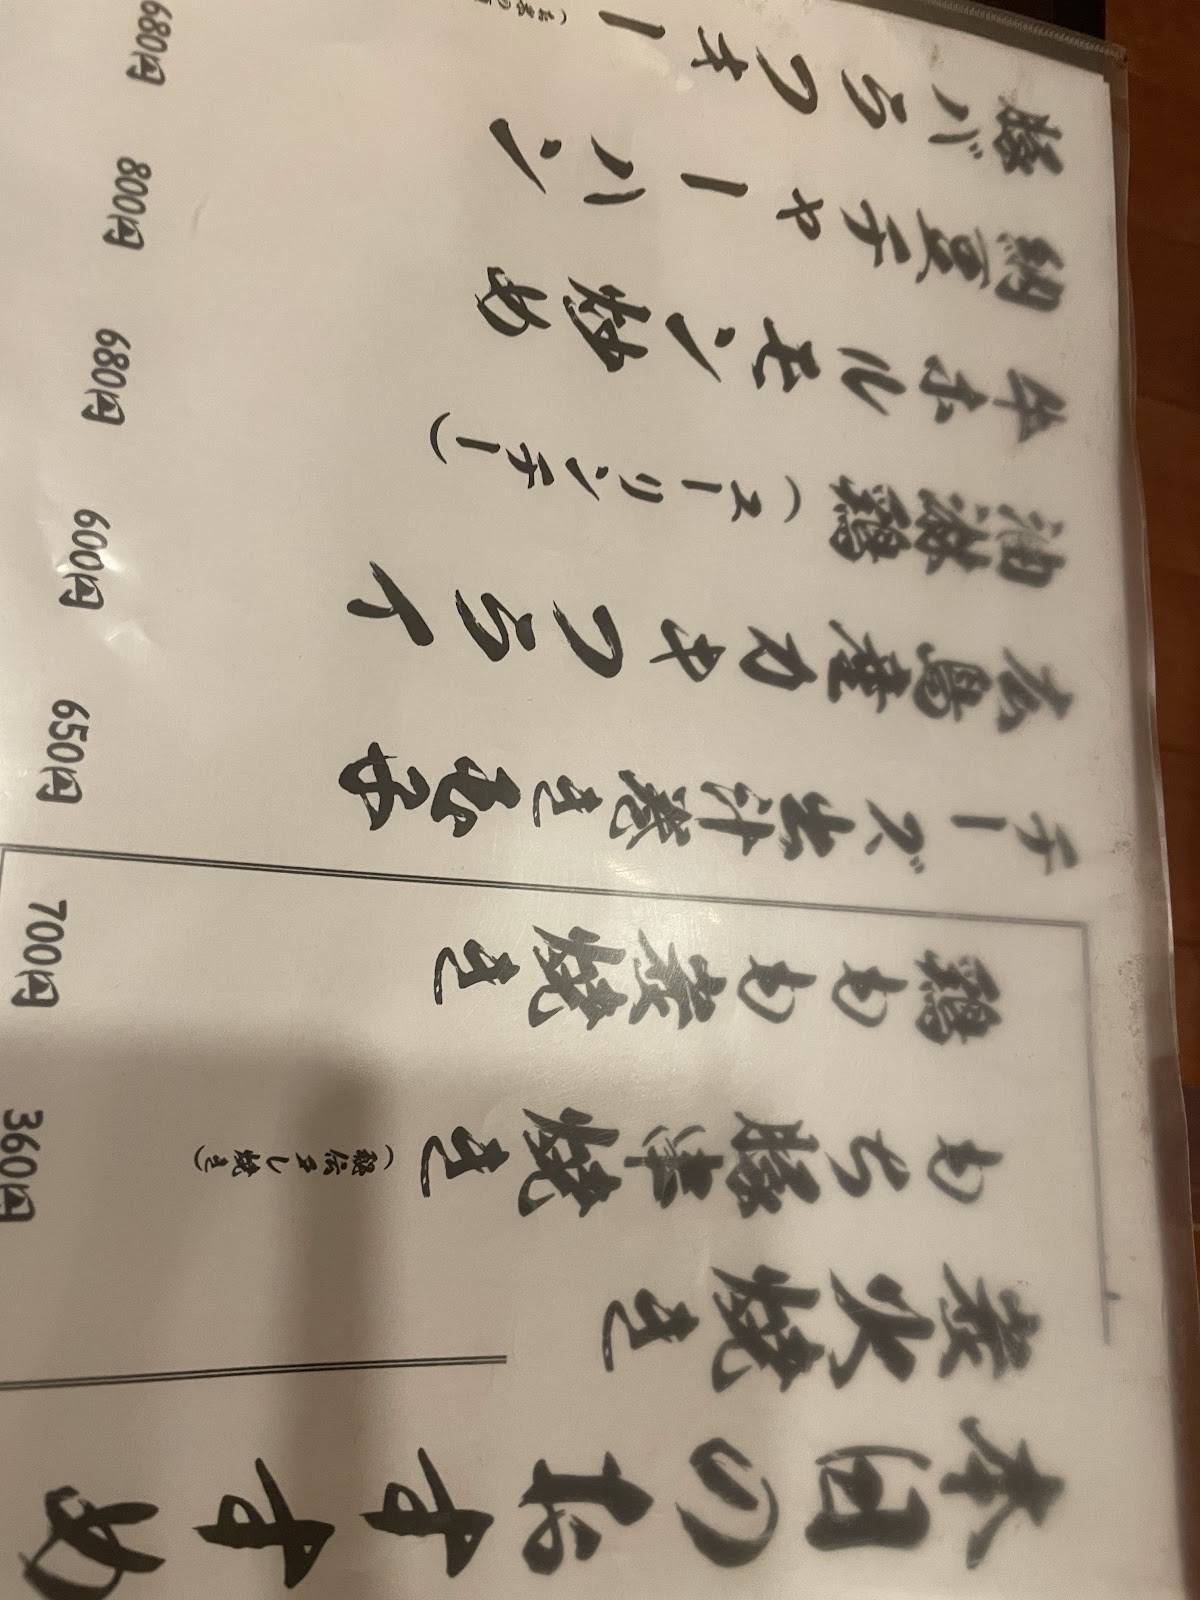 本日のおすすめ
炭火焼き
もち豚串焼き(秘伝タレ焼き) 360円
鶏もも炭焼き 700円
チーズ出汁巻き玉子 650円
広島産カキフライ 600円
油淋鶏(ユーリンチー) 680円
牛ホルモン炒め 800円
納豆チャーハン 680円
豚バラフォー